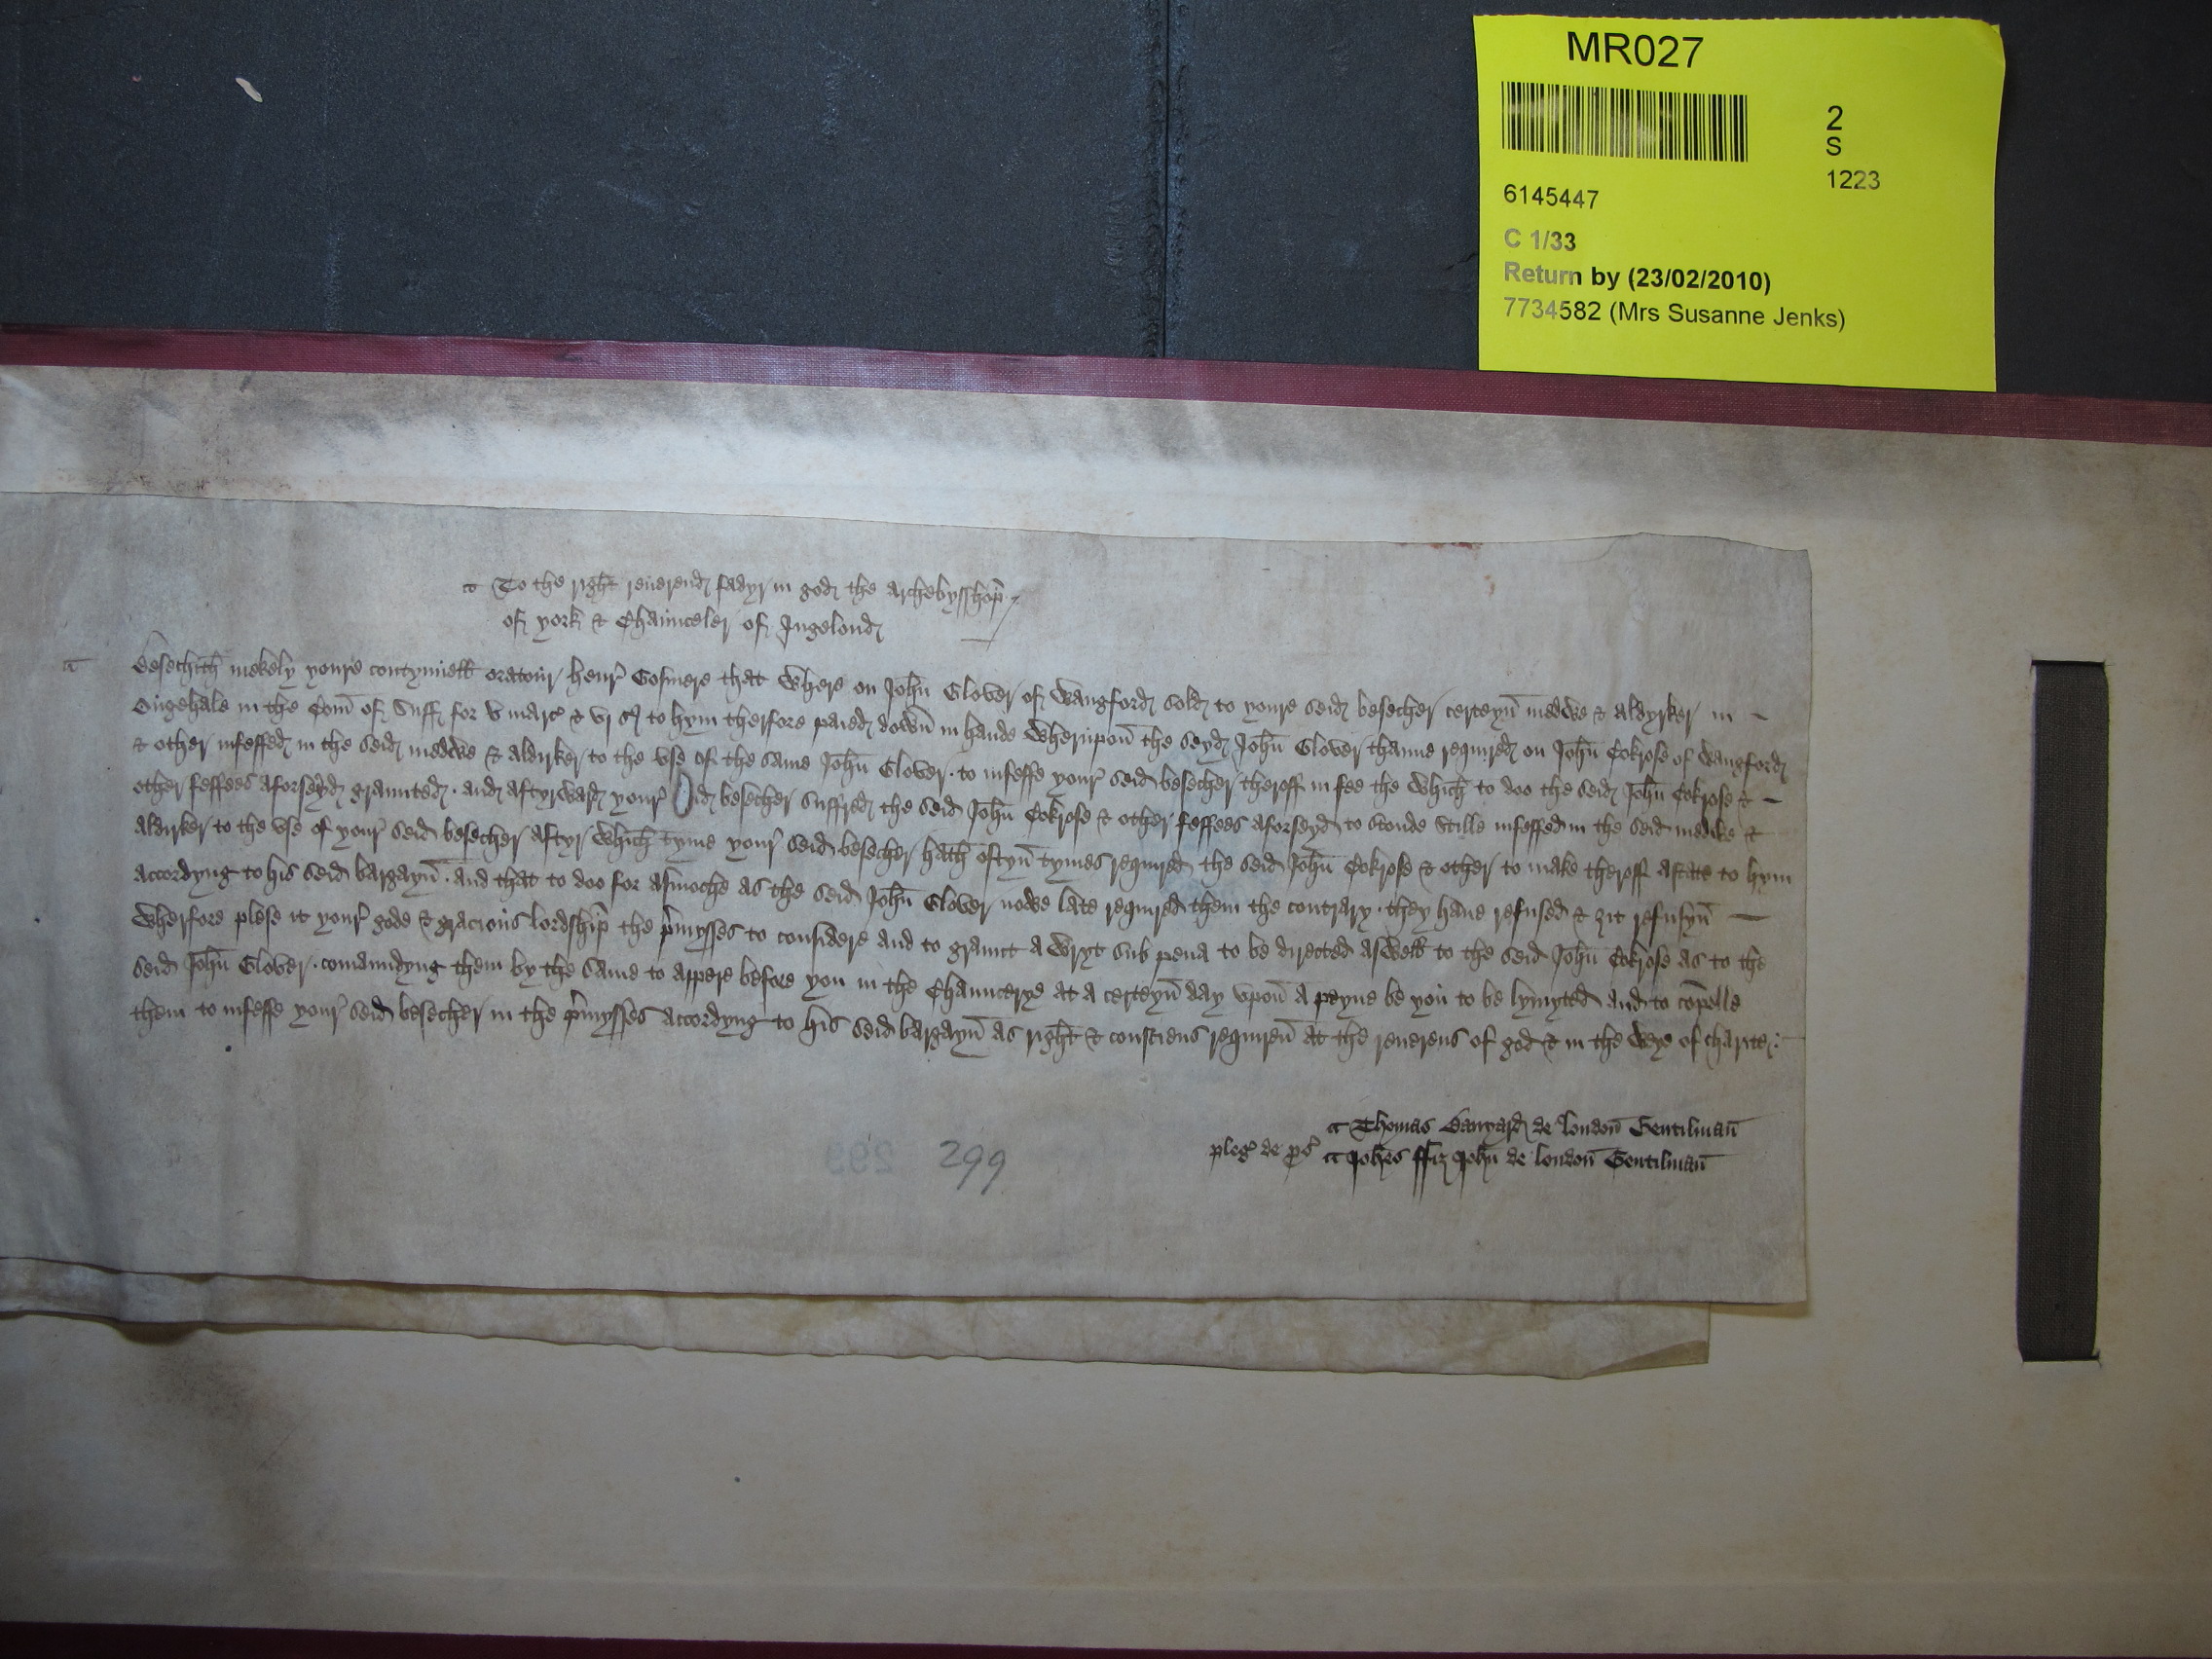 MR027
2
S
1223
6145447
C 1/33
Return by (23/02/2010)
7734582 (Mrs Susanne Jenks)
To the right reuerend fadyr in god the Archebysshop
of york & Chaunceler of Ingelond
Besechith mekely youre contynuell oratour henr' Gosmere that Where on John Glover of Wangford sold to youre seid besecher certeyn medwe & aldyrker in
in the Com of Suff for v marc & vj s to hym therfore paied down in hande Wherupon the seyd John Glover thanne required on John Cokrose of Wangford
& other infeffed in the seid medwe & aldirker to the vse of the same John Glover to infeffe your seid besecher theroff in fee the Which to doo the seid John Cokrose &
other feffees aforseyd graunted. and aftyrward your id besecher suffred the seid John Cokrose & other feffees aforseyd to stonde stille infeffed in the seid medwe &
aldirker to the vse of your seid besecher aftyr Which tyme your seid besecher hath oftyn tymes required the seid John Cokrose & other to make theroff astate to hym
accordyng to his seid bargayn. and that to doo for asmoche as the seid John Glover nowe late required them the contrary. they haue refused & zit refusyn
Wherfore plese it your gode & gracious lordship the p'mysses to considere and to graunt a Wryt sub pena to be directed asWell to the seid John Cokrose as to the
seid John Glover. comaundyng them by the same to appere before you in the Chauncerye at a certeyn day vpon a peyne be you to be lymyted and to copelle
them to infeffe your seid besecher in the p'mysses accordyng to his seid bargayn as right & consciens requiren at the reuerens of god & in the Weye of charite
pleg' de ps'
Thomas Banyard de london Gentilman
Johes ffiz John de london Gentilman
299